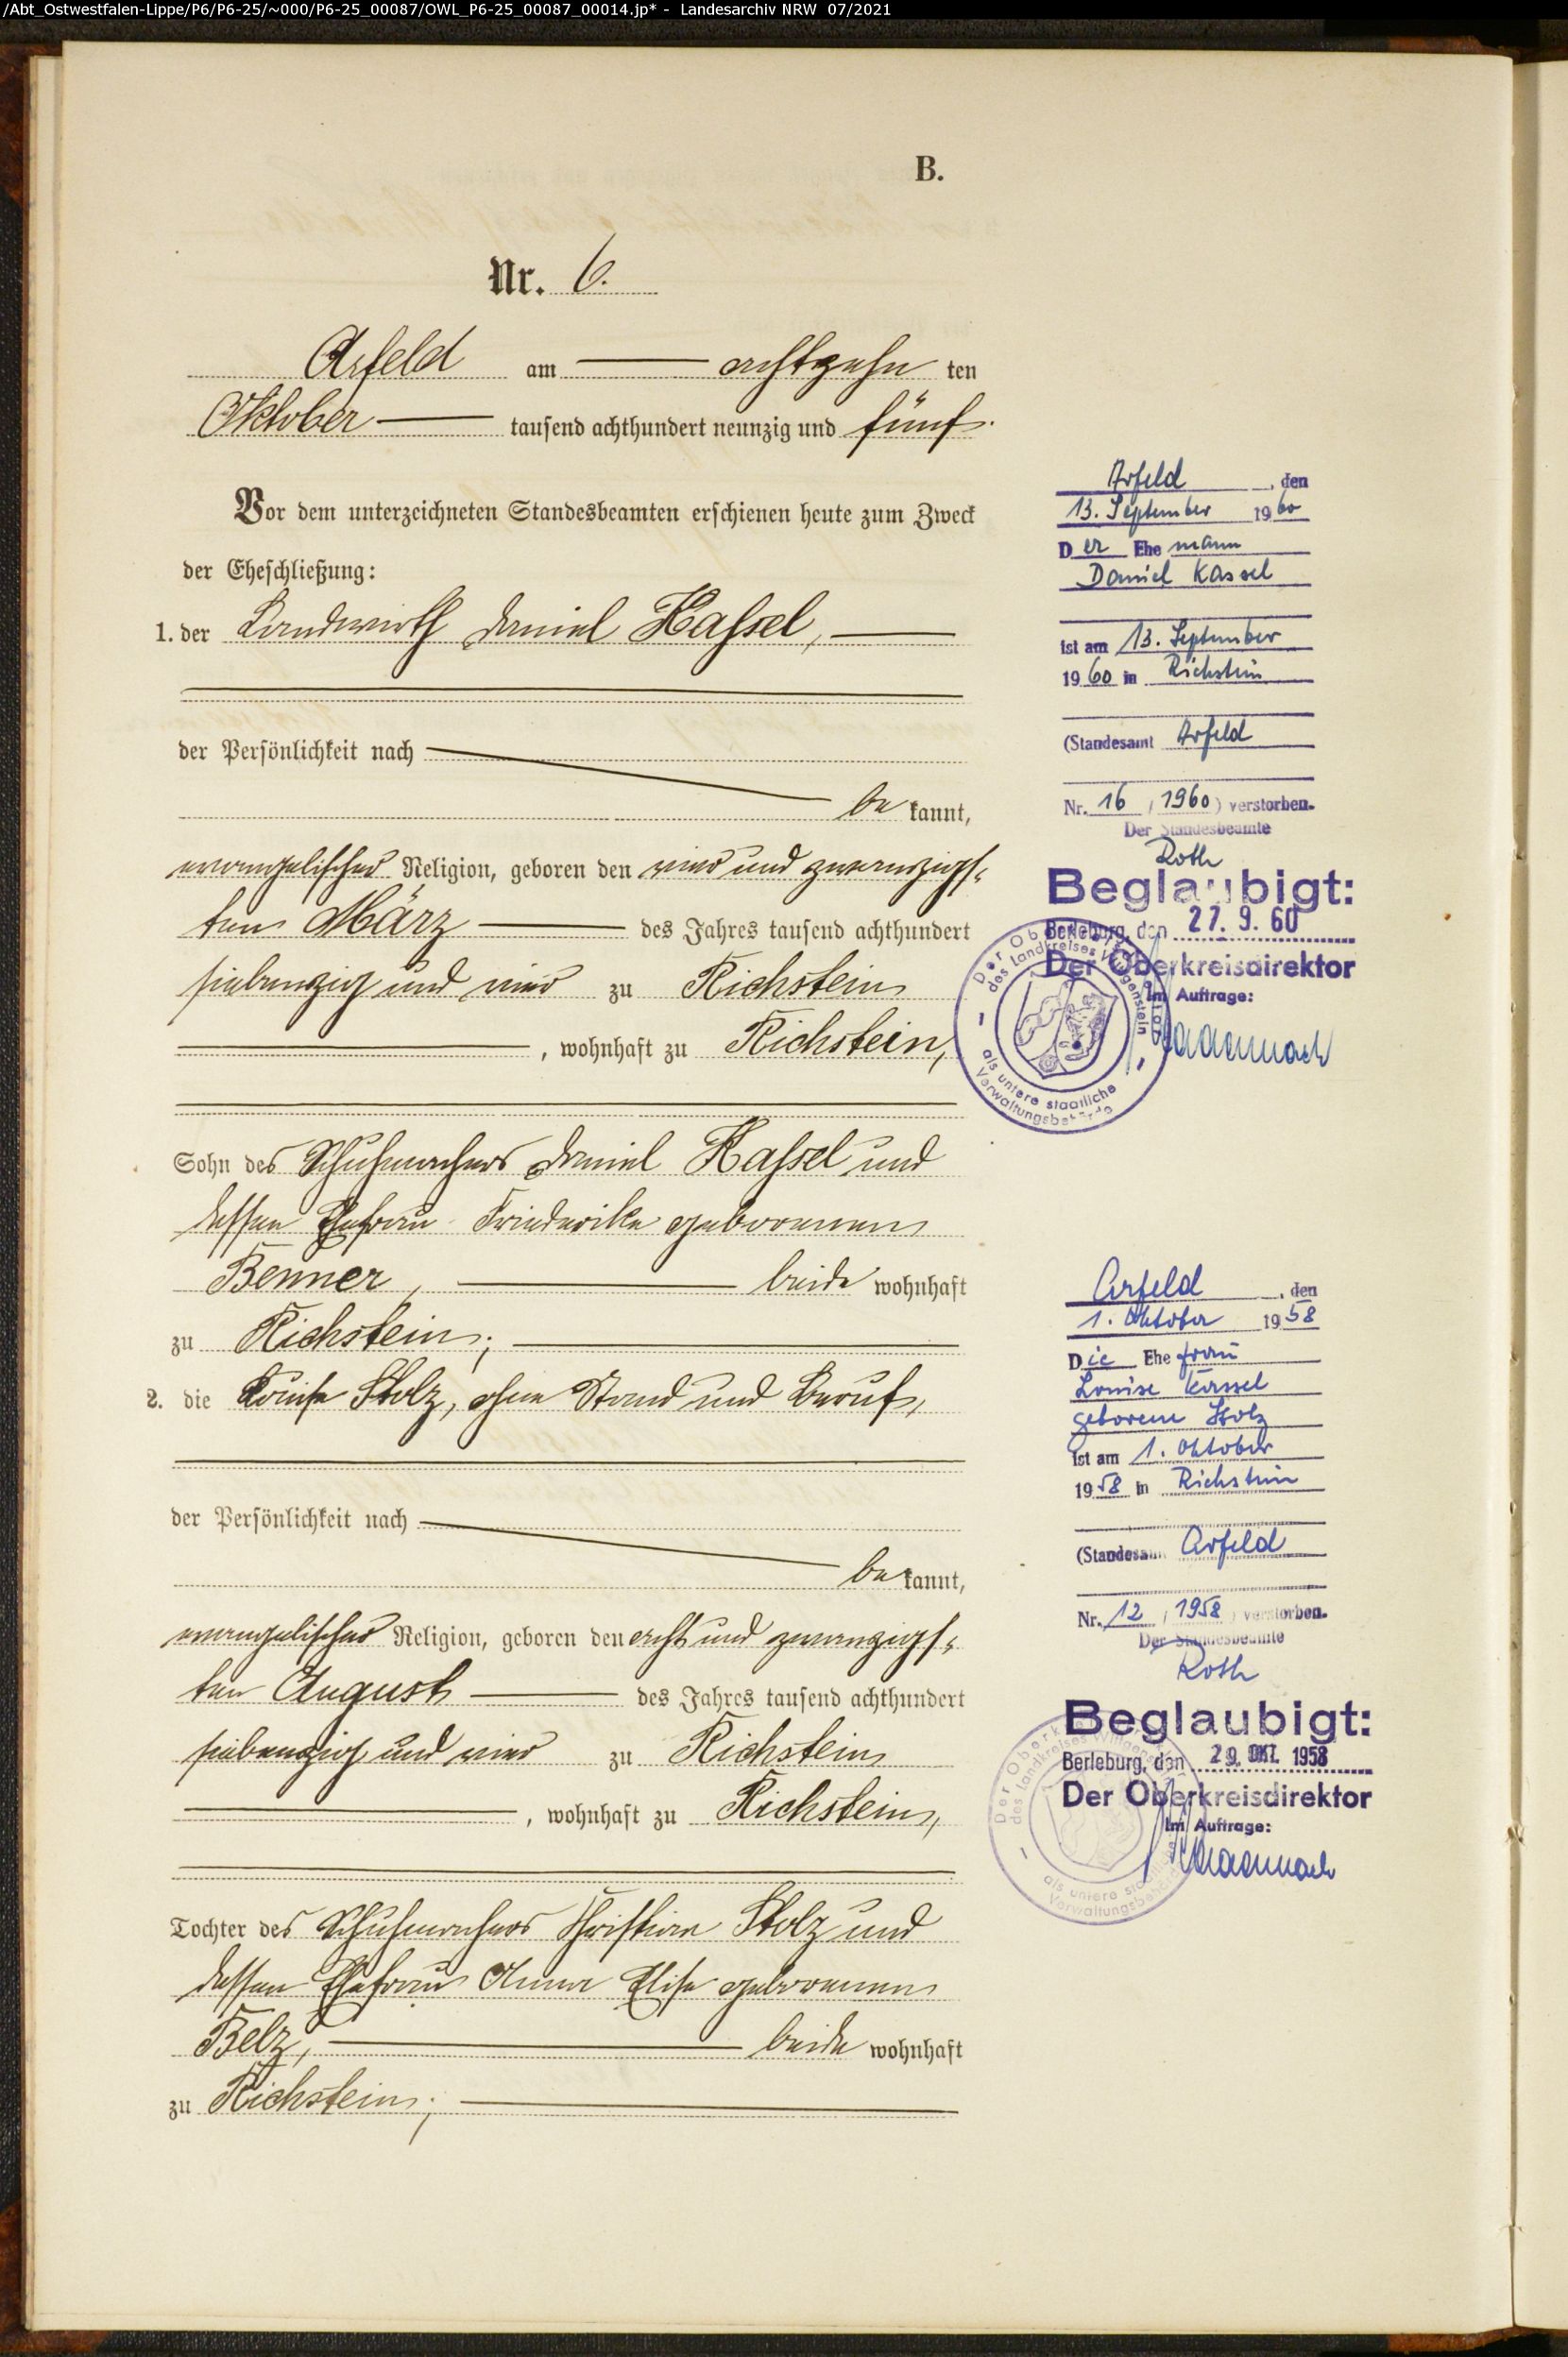 /Abt_Ostwestfalen-Lippe/P6/P6-25/~000/P6-25_00087/OWL_P6-25_00087_00014.jp* - Landesarchiv NRW 07/2021
B.
Nr. 6.
Arfeld am achtzehn ten
Oktober tausend achthundert neunzig und fünf.
Vor dem unterzeichneten Standesbeamten erschienen heute zum Zweck
der Eheschließung:
1. der Landwirth Daniel Kassel,
der Persönlichkeit nach
be kannt,
evangelischer Religion, geboren den vier und zwanzigs-
ten März des Jahres tausend achthundert
siebenzig und vier zu Richstein
, wohnhaft zu Richstein,
Sohn des Schuhmachers Daniel Kassel und
dessen Ehefrau Friederike geborenen
Benner, beide wohnhaft
zu Richstein;
2. die Louise Stolz, ohne Stand und Beruf,
der Persönlichkeit nach
be kannt,
evangelischer Religion, geboren den acht und zwanzigs-
ten August des Jahres tausend achthundert
siebenzig und vier zu Richstein
, wohnhaft zu Richstein,
Tochter des Schuhmachers Christian Stolz und
dessen Ehefrau Anna Elise geborenen
Belz, beide wohnhaft
zu Richstein;
Arfeld, den
13. September 1960
Der Ehe mann
Daniel Kassel
ist am 13. September
1960 in Richstein
(Standesamt Arfeld
Nr. 16 / 1960) verstorben.
Der Standesbeamte
Roth
Beglaubigt:
Berleburg, den 27. 9. 60
Der Oberkreisdirektor
Im Auftrage:
Der Oberkreisdirektor
des Landkreises Wittgenstein
als untere staatliche
Verwaltungsbehörde
Arfeld, den
1. Oktober 1958
Die Ehe frau
Louise Kassel
geborene Stolz
ist am 1. Oktober
1958 in Richstein
(Standesamt Arfeld
Nr. 12 / 1958) verstorben.
Der Standesbeamte
Roth
Beglaubigt:
Berleburg, den 29. OKT. 1958
Der Oberkreisdirektor
Im Auftrage:
Der Oberkreisdirektor
des Landkreises Wittgenstein
als untere staatliche
Verwaltungsbehörde